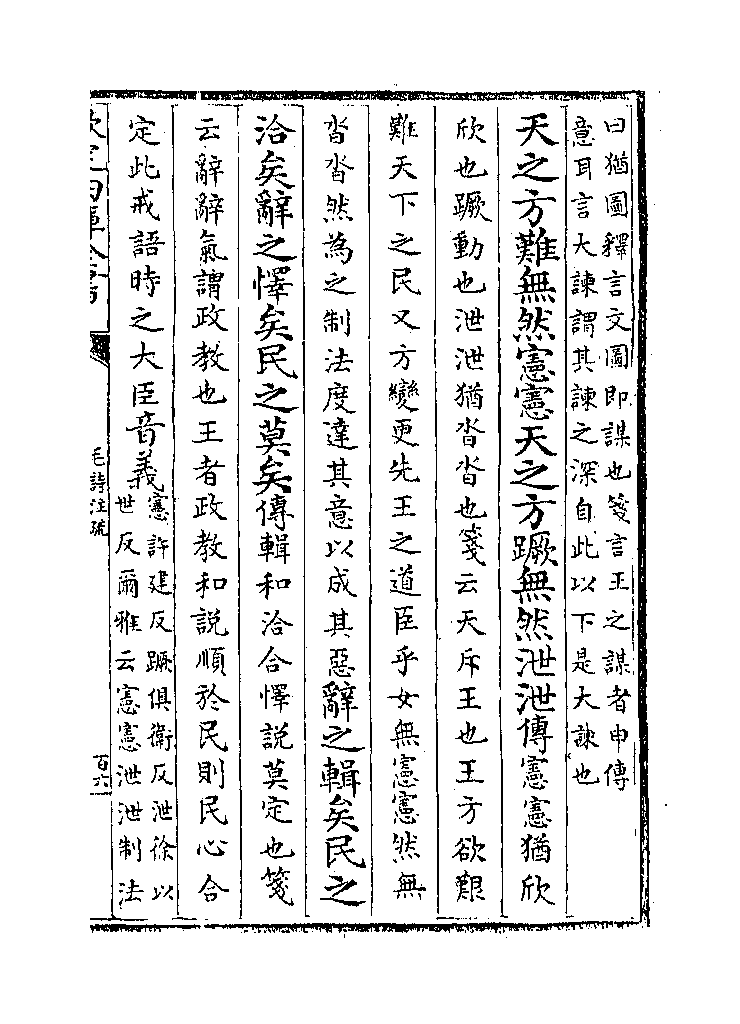 曰猶圖釋言文圖即謀也箋言王之謀者申傳
意耳言大諫謂其諫之深自此以下是大諫也
天之方難無然憲憲天之方蹶無然泄泄傳憲憲猶欣
欣也蹶動也泄泄猶沓沓也箋云天斥王也王方欲艱
難天下之民又方變更先王之道臣乎女無憲憲然無
沓沓然為之制法度達其意以成其惡辭之輯矣民之
洽矣辭之懌矣民之莫矣傳輯和洽合懌説莫定也箋
云辭辭氣謂政教也王者政教和説順於民則民心合
定此戒語時之大臣音義憲許建反蹶俱衛反泄徐以
世反爾雅云憲憲泄泄制法
欽定四庫全書
毛詩注疏
百六